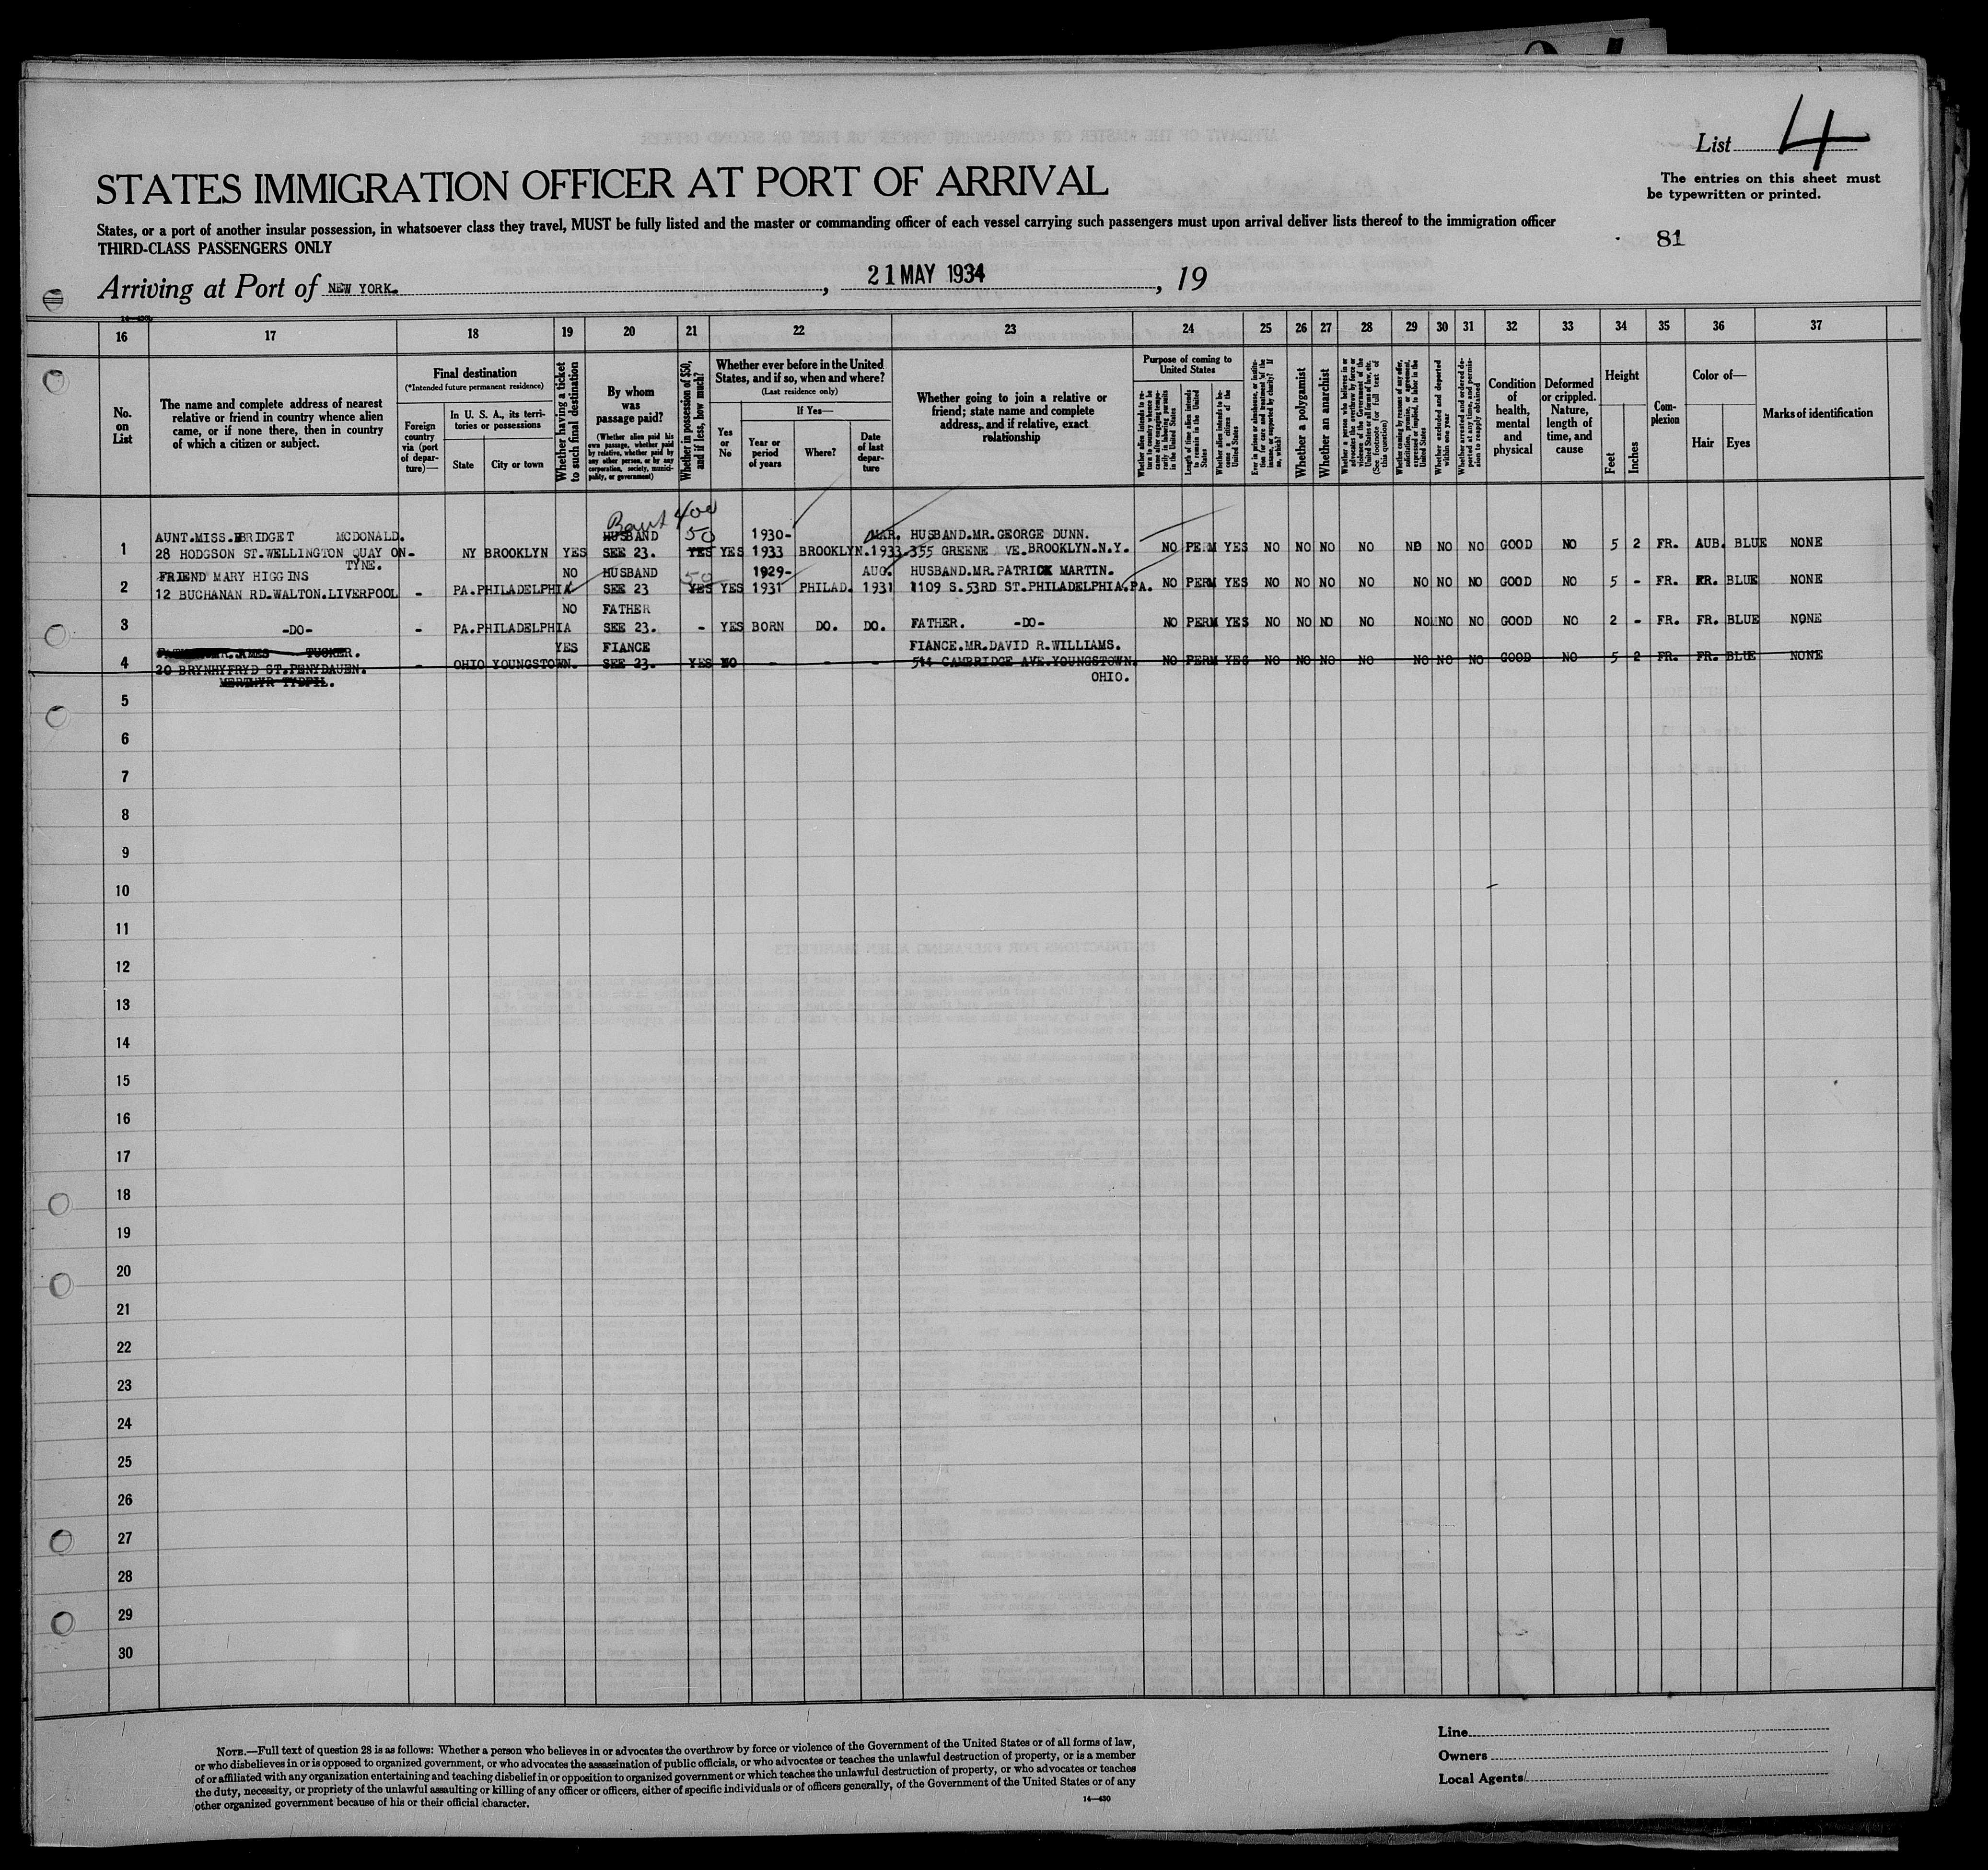 List 4
The entries on this sheet must
be typewritten or printed.
STATES IMMIGRATION OFFICER AT PORT OF ARRIVAL
States, or a port of another insular possession, in whatsoever class they travel, MUST be fully listed and the master or commanding officer of each vessel carrying such passengers must upon arrival deliver lists thereof to the immigration officer
THIRD-CLASS PASSENGERS ONLY
81
Arriving at Port of NEW YORK. , 21 MAY 1934 , 19
16 17 18 19 20 21 22 23 24 25 26 27 28 29 30 31 32 33 34 35 36 37
No. on List
The name and complete address of nearest relative or friend in country whence alien came, or if none there, then in country of which a citizen or subject.
Final destination
(*Intended future permanent residence)
Foreign country via (port of departure)—
In U. S. A., its territories or possessions
State
City or town
Whether having a ticket to such final destination
By whom was passage paid?
(Whether alien paid his own passage, whether paid by relative, whether paid by any other person, or by any corporation, society, municipality, or government)
Whether in possession of $50, and if less, how much?
Whether ever before in the United States, and if so, when and where?
(Last residence only)
Yes or No
If Yes—
Year or period of years
Where?
Date of last departure
Whether going to join a relative or friend; state name and complete address, and if relative, exact relationship
Purpose of coming to United States
Length of time alien intends to remain in the United States
Whether alien intends to become a citizen of the United States
Whether a polygamist
Whether an anarchist
(See footnote for full text of this question)
Whether excluded and deported within one year
Condition of health, mental and physical
Deformed or crippled. Nature, length of time, and cause
Height
Feet
Inches
Complexion
Color of—
Hair
Eyes
Marks of identification
400
1 AUNT.MISS.BRIDGET MCDONALD. HUSBAND 50 1930- MAR. HUSBAND.MR.GEORGE DUNN.
28 HODGSON ST.WELLINGTON QUAY ON- NY BROOKLYN YES SEE 23. YES YES 1933 BROOKLYN.1933 355 GREENE VE.BROOKLYN.N.Y. NO PERM YES NO NO NO NO NO NO NO GOOD NO 5 2 FR. AUB. BLUE NONE
TYNE.
2 FRIEND MARY HIGGINS NO HUSBAND 50 1929- AUG. HUSBAND.MR.PATRICK MARTIN.
12 BUCHANAN RD.WALTON.LIVERPOOL - PA.PHILADELPHIA SEE 23 YES YES 1931 PHILAD. 1931 1109 S.53RD ST.PHILADELPHIA.PA. NO PERM YES NO NO NO NO NO NO NO GOOD NO 5 - FR. FR. BLUE NONE
NO FATHER
3 -DO- - PA.PHILADELPHIA SEE 23. - YES BORN DO. DO. FATHER. -DO- NO PERM YES NO NO NO NO NO NO NO GOOD NO 2 - FR. FR. BLUE NONE
TUCKER. YES FIANCE FIANCE.MR.DAVID R.WILLIAMS.
4 20 BRYNHYFRYD ST.PENYDAUEN. - OHIO YOUNGSTOWN. SEE 23. YES NO - - - 544 CAMBRIDGE AVE.YOUNGSTOWN. NO PERM YES NO NO NO NO NO NO NO GOOD NO 5 2 FR. FR. BLUE NONE
MERTHYR TYDFIL. OHIO.
5
6
7
8
9
10
11
12
13
14
15
16
17
18
19
20
21
22
23
24
25
26
27
28
29
30
NOTE.—Full text of question 28 is as follows: Whether a person who believes in or advocates the overthrow by force or violence of the Government of the United States or of all forms of law,
or who disbelieves in or is opposed to organized government, or who advocates the assassination of public officials, or who advocates or teaches the unlawful destruction of property, or is a member
of or affiliated with any organization entertaining and teaching disbelief in or opposition to organized government or which teaches the unlawful destruction of property, or who advocates or teaches
the duty, necessity, or propriety of the unlawful assaulting or killing of any officer or officers, either of specific individuals or of officers generally, of the Government of the United States or of any
other organized government because of his or their official character.
14—430
Line
Owners
Local Agents